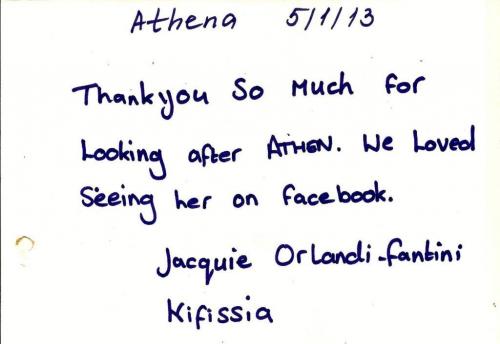 Athena 5/1/13
Thankyou So Much for
Looking after ATHEN. We Loved
Seeing her on facebook.
Jacquie Orlandi-fantini
Kifissia